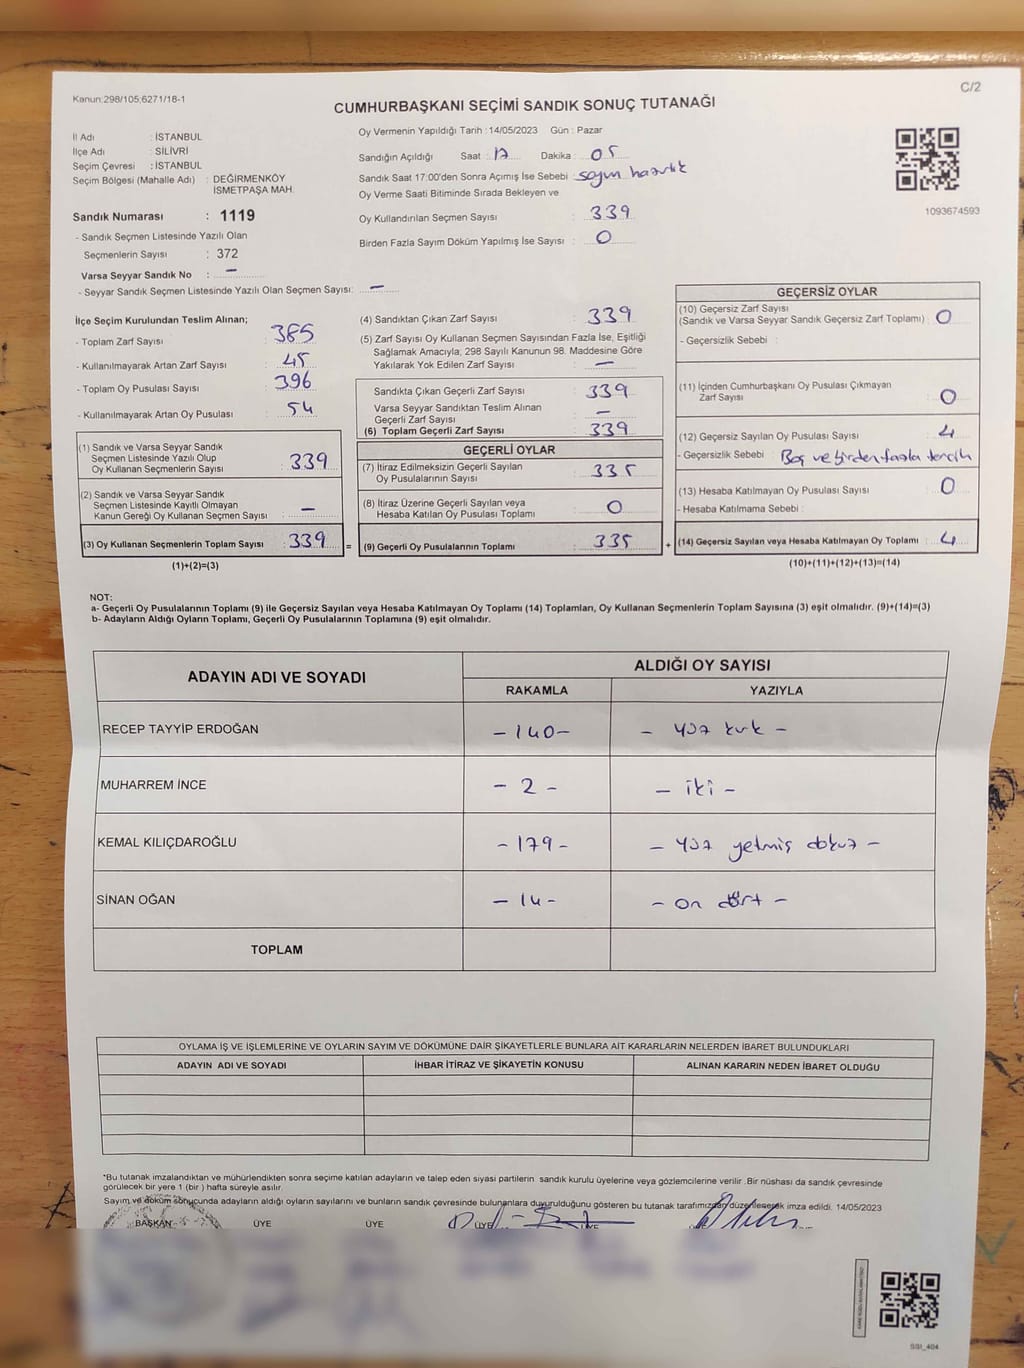 Kanun:298/105;6271/18-1
C/2
CUMHURBAŞKANI SEÇİMİ SANDIK SONUÇ TUTANAĞI
İl Adı : İSTANBUL
İlçe Adı : SİLİVRİ
Seçim Çevresi : İSTANBUL
Seçim Bölgesi (Mahalle Adı) : DEĞİRMENKÖY
İSMETPAŞA MAH.
Sandık Numarası : 1119
- Sandık Seçmen Listesinde Yazılı Olan
Seçmenlerin Sayısı : 372
Varsa Seyyar Sandık No : —
- Seyyar Sandık Seçmen Listesinde Yazılı Olan Seçmen Sayısı: —
Oy Vermenin Yapıldığı Tarih : 14/05/2023 Gün : Pazar
Sandığın Açıldığı Saat : 17 Dakika : 05
Sandık Saat 17:00'den Sonra Açımış İse Sebebi : sayım hazırlık
Oy Verme Saati Bitiminde Sırada Bekleyen ve
Oy Kullandırılan Seçmen Sayısı : 339
Birden Fazla Sayım Döküm Yapılmış İse Sayısı : 0
1093674593
İlçe Seçim Kurulundan Teslim Alınan;
- Toplam Zarf Sayısı : 385
- Kullanılmayarak Artan Zarf Sayısı : 45
- Toplam Oy Pusulası Sayısı : 396
- Kullanılmayarak Artan Oy Pusulası : 54
(1) Sandık ve Varsa Seyyar Sandık
Seçmen Listesinde Yazılı Olup
Oy Kullanan Seçmenlerin Sayısı : 339
(2) Sandık ve Varsa Seyyar Sandık
Seçmen Listesinde Kayıtlı Olmayan
Kanun Gereği Oy Kullanan Seçmen Sayısı : —
(3) Oy Kullanan Seçmenlerin Toplam Sayısı : 339 =
(1)+(2)=(3)
(4) Sandıktan Çıkan Zarf Sayısı : 339
(5) Zarf Sayısı Oy Kullanan Seçmen Sayısından Fazla İse, Eşitliği
Sağlamak Amacıyla; 298 Sayılı Kanunun 98. Maddesine Göre
Yakılarak Yok Edilen Zarf Sayısı : —
Sandıkta Çıkan Geçerli Zarf Sayısı : 339
Varsa Seyyar Sandıktan Teslim Alınan
Geçerli Zarf Sayısı : —
(6) Toplam Geçerli Zarf Sayısı : 339
GEÇERLİ OYLAR
(7) İtiraz Edilmeksizin Geçerli Sayılan
Oy Pusulalarının Sayısı : 335
(8) İtiraz Üzerine Geçerli Sayılan veya
Hesaba Katılan Oy Pusulası Toplamı : 0
(9) Geçerli Oy Pusulalarının Toplamı : 335 +
GEÇERSİZ OYLAR
(10) Geçersiz Zarf Sayısı
(Sandık ve Varsa Seyyar Sandık Geçersiz Zarf Toplamı) : 0
- Geçersizlik Sebebi :
(11) İçinden Cumhurbaşkanı Oy Pusulası Çıkmayan
Zarf Sayısı : 0
(12) Geçersiz Sayılan Oy Pusulası Sayısı : 4
- Geçersizlik Sebebi : Boş ve birden fazla tercih
(13) Hesaba Katılmayan Oy Pusulası Sayısı : 0
- Hesaba Katılmama Sebebi :
(14) Geçersiz Sayılan veya Hesaba Katılmayan Oy Toplamı : 4
(10)+(11)+(12)+(13)=(14)
NOT:
a- Geçerli Oy Pusulalarının Toplamı (9) ile Geçersiz Sayılan veya Hesaba Katılmayan Oy Toplamı (14) Toplamları, Oy Kullanan Seçmenlerin Toplam Sayısına (3) eşit olmalıdır. (9)+(14)=(3)
b- Adayların Aldığı Oyların Toplamı, Geçerli Oy Pusulalarının Toplamına (9) eşit olmalıdır.
ADAYIN ADI VE SOYADI ALDIĞI OY SAYISI
RAKAMLA YAZIYLA
RECEP TAYYİP ERDOĞAN -140- - yüz kırk -
MUHARREM İNCE - 2 - - iki -
KEMAL KILIÇDAROĞLU -179- - yüz yetmiş dokuz -
SİNAN OĞAN - 14 - - on dört -
TOPLAM
OYLAMA İŞ VE İŞLEMLERİNE VE OYLARIN SAYIM VE DÖKÜMÜNE DAİR ŞİKAYETLERLE BUNLARA AİT KARARLARIN NELERDEN İBARET BULUNDUKLARI
ADAYIN ADI VE SOYADI İHBAR İTİRAZ VE ŞİKAYETİN KONUSU ALINAN KARARIN NEDEN İBARET OLDUĞU
*Bu tutanak imzalandıktan ve mühürlendikten sonra seçime katılan adayların ve talep eden siyasi partilerin sandık kurulu üyelerine veya gözlemcilerine verilir .Bir nüshası da sandık çevresinde
görülecek bir yere 1 (bir ) hafta süreyle asılır.
Sayım ve döküm sonucunda adayların aldığı oyların sayılarını ve bunların sandık çevresinde bulunanlara duyurulduğunu gösteren bu tutanak tarafımızdan düzenlenerek imza edildi. 14/05/2023
BAŞKAN ÜYE ÜYE ÜYE ÜYE
SSI_404